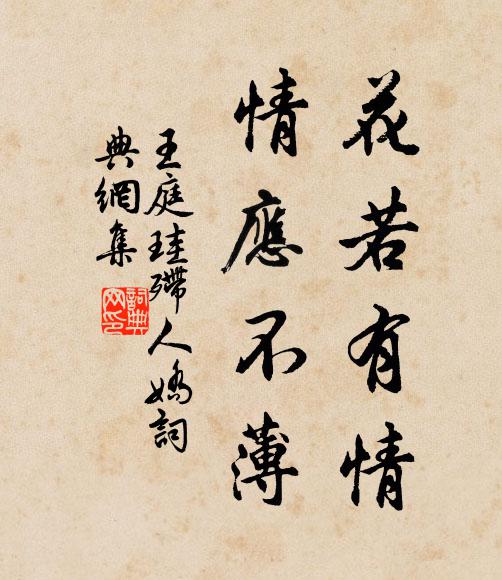 花若有情
情應不薄
王庭珪殢人嬌詞
典網集
詞典網印